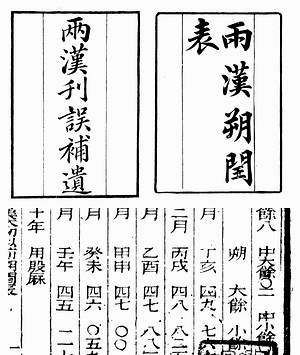 兩漢朔閏
表
兩漢刊誤補遺
餘八 中大餘〇一 中小餘
朔 大餘 小餘
月 丁亥 四九 七六
二月 丙戌 四八 八二
月 乙酉 四七 八八
月 甲申 四七 〇〇
月 癸未 四六 〇五
月 壬午 四五 二
十年 用殷厤